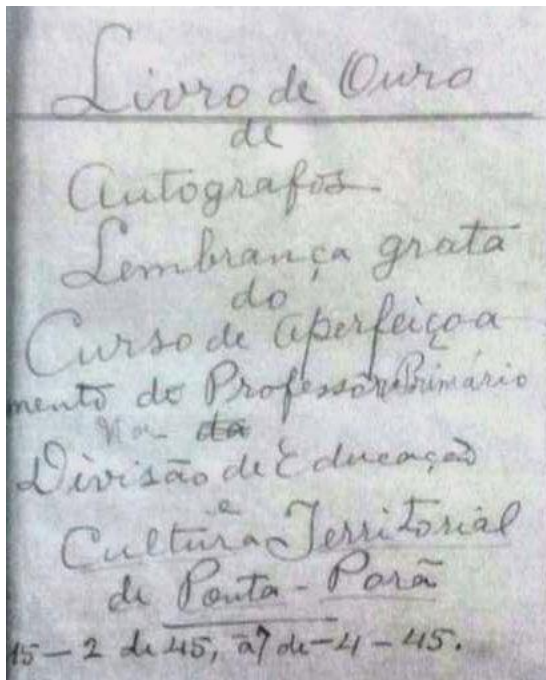 Livro de Ouro
de
Autógrafos
Lembrança grata
do
Curso de Aperfeiçoa
mento do Professor Primário
Na da
Divisão de Educação
e
Cultura Territorial
de Ponta-Porã
15-2 de 45, à 7 de-4-45.